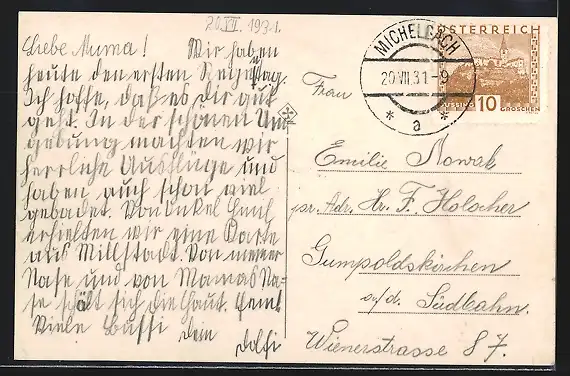 20.VII. 1931.
Liebe Muma! Wir haben
heute den ersten Regentag.
Ich hoffe, daß es dir gut
geht. In der schönen Um
gebung machten wir
herrliche Ausflüge und
haben auch schon viel
gebadet. Von Onkel
erhielten wir eine Karte
aus Millstadt. Von meiner
Nase und von Mamas Na-
se schält sich die Haut.
Viele Bussi dein
Dolfi
MICHELBACH
20 VII 31-9
* a *
ÖSTERREICH
10 GROSCHEN
Frau
Emilie Nowak
pr. Adr. Hr. F. Holocher
Gumpoldskirchen
a/d. Südbahn.
Wienerstrasse 87.